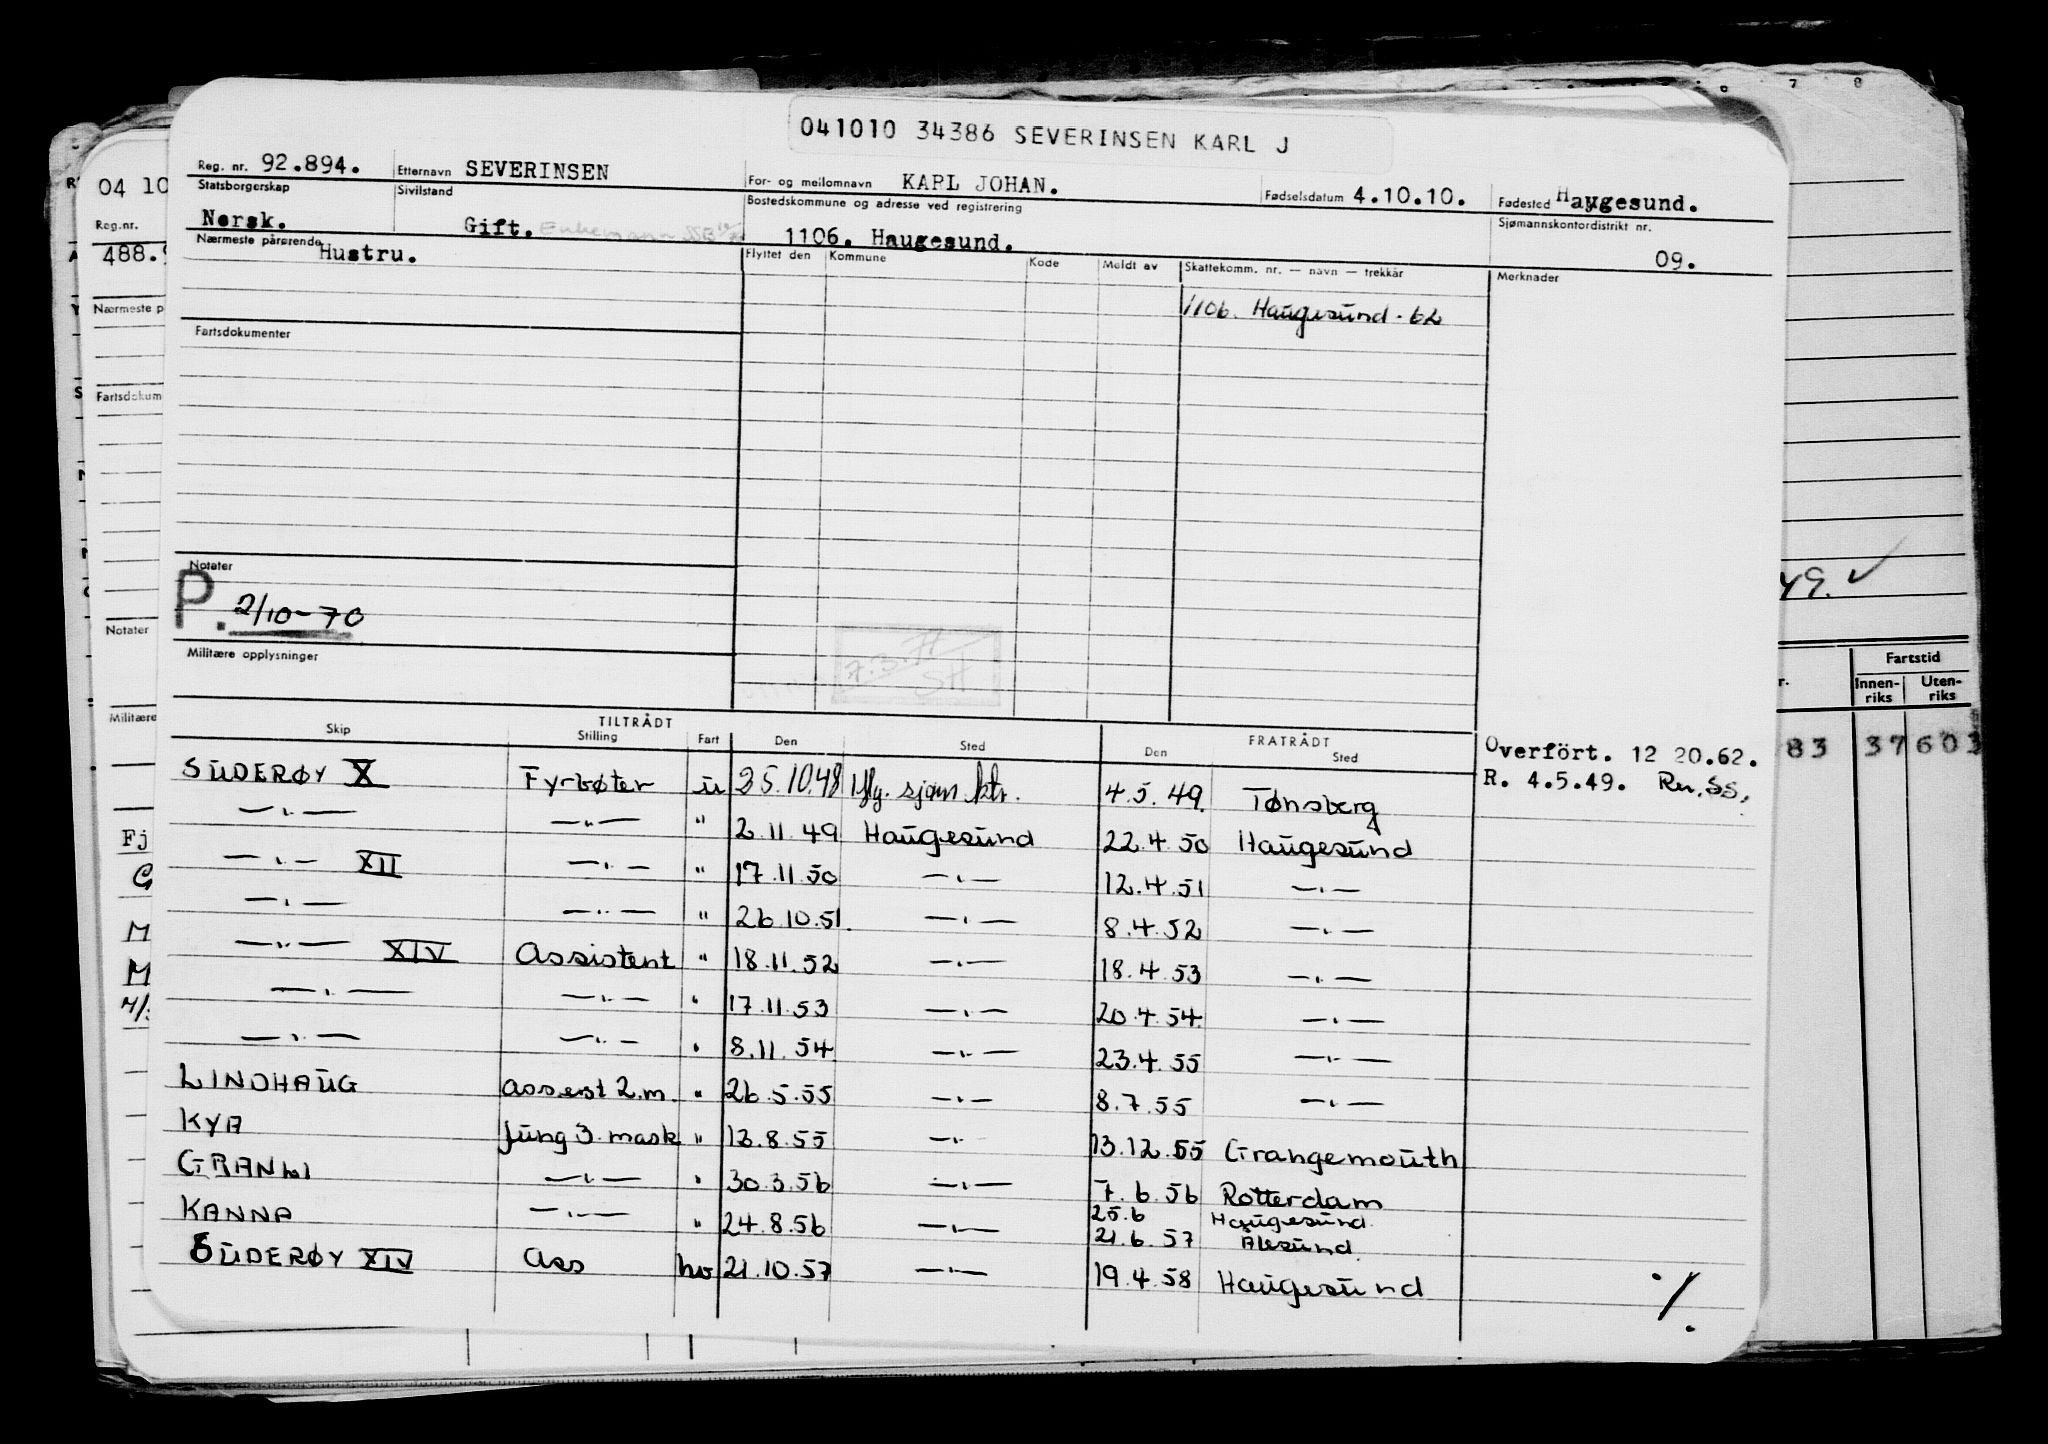 041010 34386 SEVERINSEN KARL J
Reg. nr. 92.894. Etternavn SEVERINSEN For- og mellomnavn KARL JOHAN. Fødselsdatum 4.10.10. Fødested Haugesund.
Statsborgerskap Sivilstand Bostedskommune og adresse ved registrering Sjømannskontordistrikt nr.
Norsk. Gift. Enkemann 1106. Haugesund. 09.
Nærmeste pårørende Hustru. Flyttet den Kommune Kode Meldt av Skattekomm. nr. — navn — trekkår Merknader
1106. Haugesund - 62
Fartsdokumenter
Notater
P. 2/10-70
7.3.71
SH
Militære opplysninger
TILTRÅDT FRATRÅDT
Skip Stilling Fart Den Sted Den Sted
Overført. 12 20.62.
R. 4.5.49.
SUDERØY X Fyrbøter u 25.10.48 Hg. sjøm.ktr. 4.5.49. Tønsberg
—"— —"— " 2.11.49 Haugesund 22.4.50 Haugesund
—"— XII —"— " 17.11.50 —"— 12.4.51 —"—
—"— —"— " 26.10.51. —"— 8.4.52 —"—
—"— XIV Assistent " 18.11.52 —"— 18.4.53 —"—
—"— —"— " 17.11.53 —"— 20.4.54. —"—
—"— —"— " 8.11.54 —"— 23.4.55 —"—
LINDHAUG assist 2.m. " 26.5.55 —"— 8.7.55 —"—
KYA fung 3. mask " 12.8.55 —"— 13.12.55 Grangemouth
GRANLI —"— " 30.3.56 —"— 7.6.56 Rotterdam
25.6 Haugesund.
KANNA —"— " 24.8.56 —"— 21.6.57 Ålesund.
SUDERØY XIV Ass hv 21.10.57 —"— 19.4.58 Haugesund
./.
04 10
Reg.nr.
488.9
Nærmeste p
Fartsdokum
Notater
Militære
Fj
G
M
M
7 8
49. ✓
Fartstid
Innen-riks Uten-riks
83 37 603